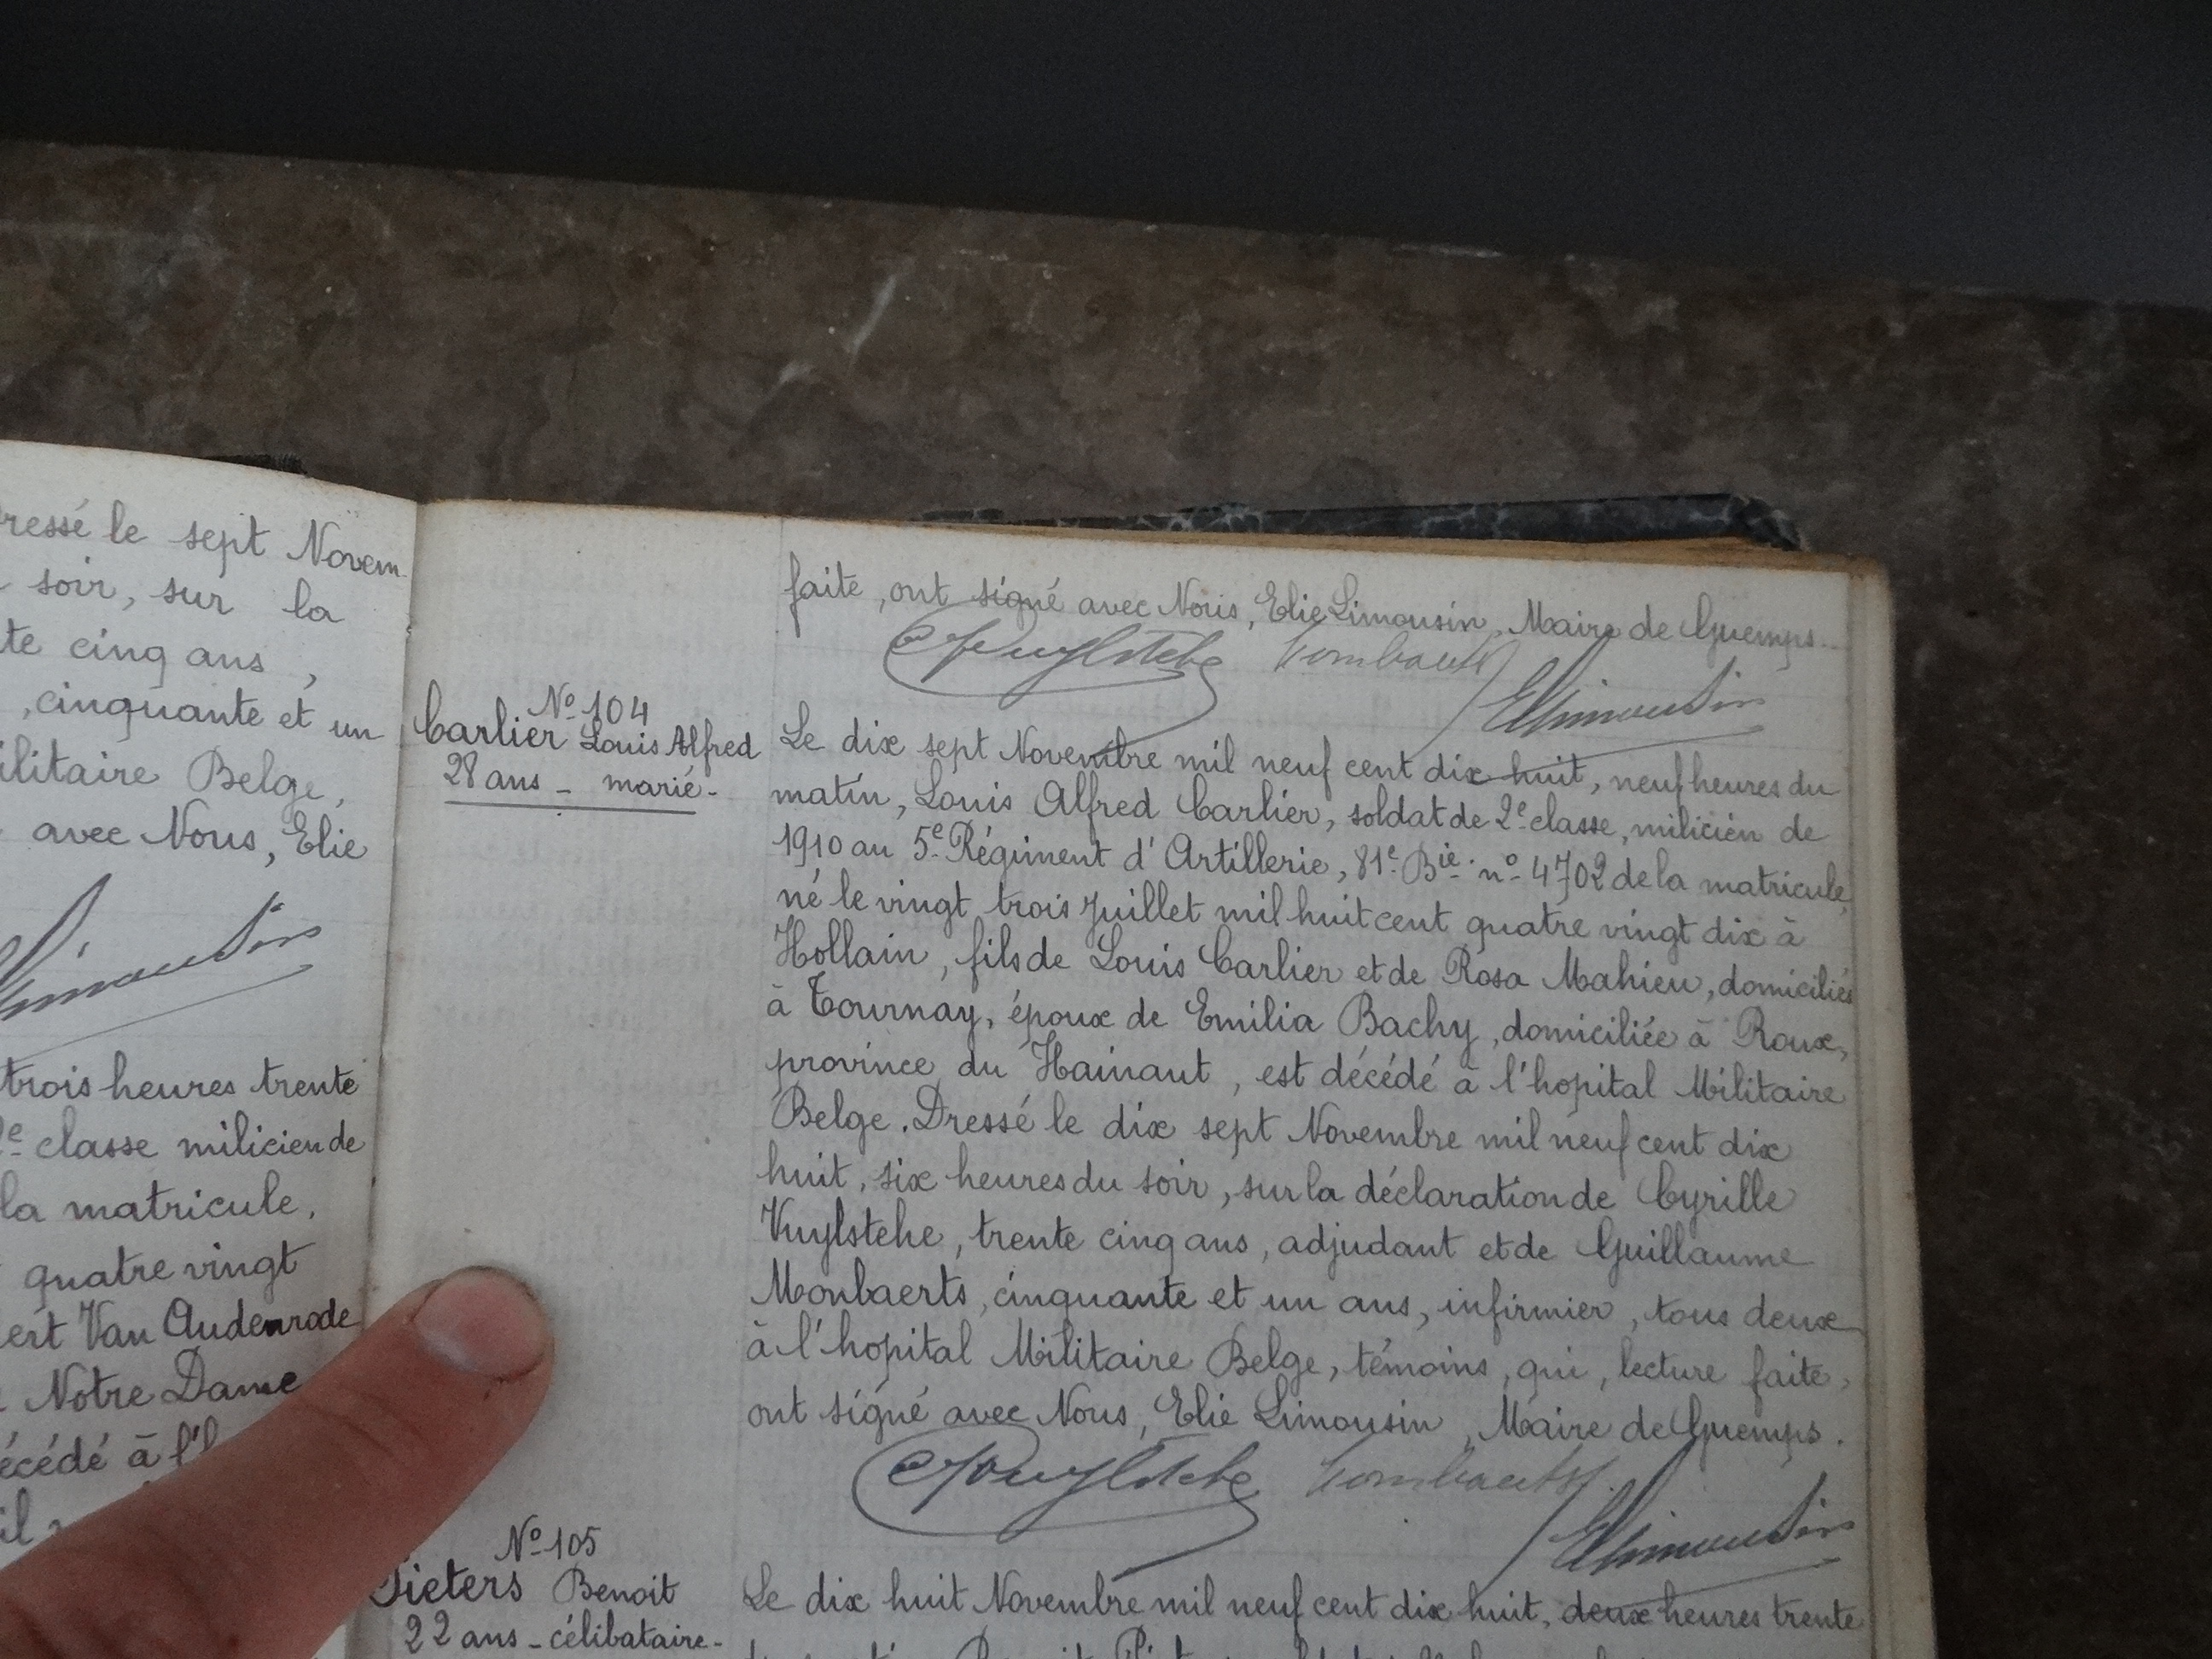 ressé le sept Novem-
soir, sur la
te cinq ans,
, cinquante et un
ilitaire Belge,
avec Nous, Elie
Limousin
trois heures trente
e classe milicien de
la matricule,
quatre vingt
ert Van Audenrode
Notre Dame
écédé à l'h
il
faite, ont signé avec Nous, Elie Limousin, Maire de Guemps.
ELimousin
Nº 104
Carlier Louis Alfred
28 ans - marié -
Le dix sept Novembre mil neuf cent dix huit, neuf heures du
matin, Louis Alfred Carlier, soldat de 2e classe, milicien de
1910 au 5e Régiment d'Artillerie, 81e Bie nº 4702 de la matricule,
né le vingt trois Juillet mil huit cent quatre vingt dix à
Hollain, fils de Louis Carlier et de Rosa Mahieu, domiciliés
à Tournay, époux de Emilia Bachy, domiciliée à Roux,
province du Hainaut, est décédé à l'hopital Militaire
Belge. Dressé le dix sept Novembre mil neuf cent dix
huit, six heures du soir, sur la déclaration de Cyrille
Vuylstehe, trente cinq ans, adjudant et de Guillaume
Monbaerts, cinquante et un ans, infirmier, tous deux
à l'hopital Militaire Belge, témoins, qui, lecture faite,
ont signé avec Nous, Elie Limousin, Maire de Guemps.
ELimousin
Nº 105
Pieters Benoit
22 ans - célibataire -
Le dix huit Novembre mil neuf cent dix huit, deux heures trente